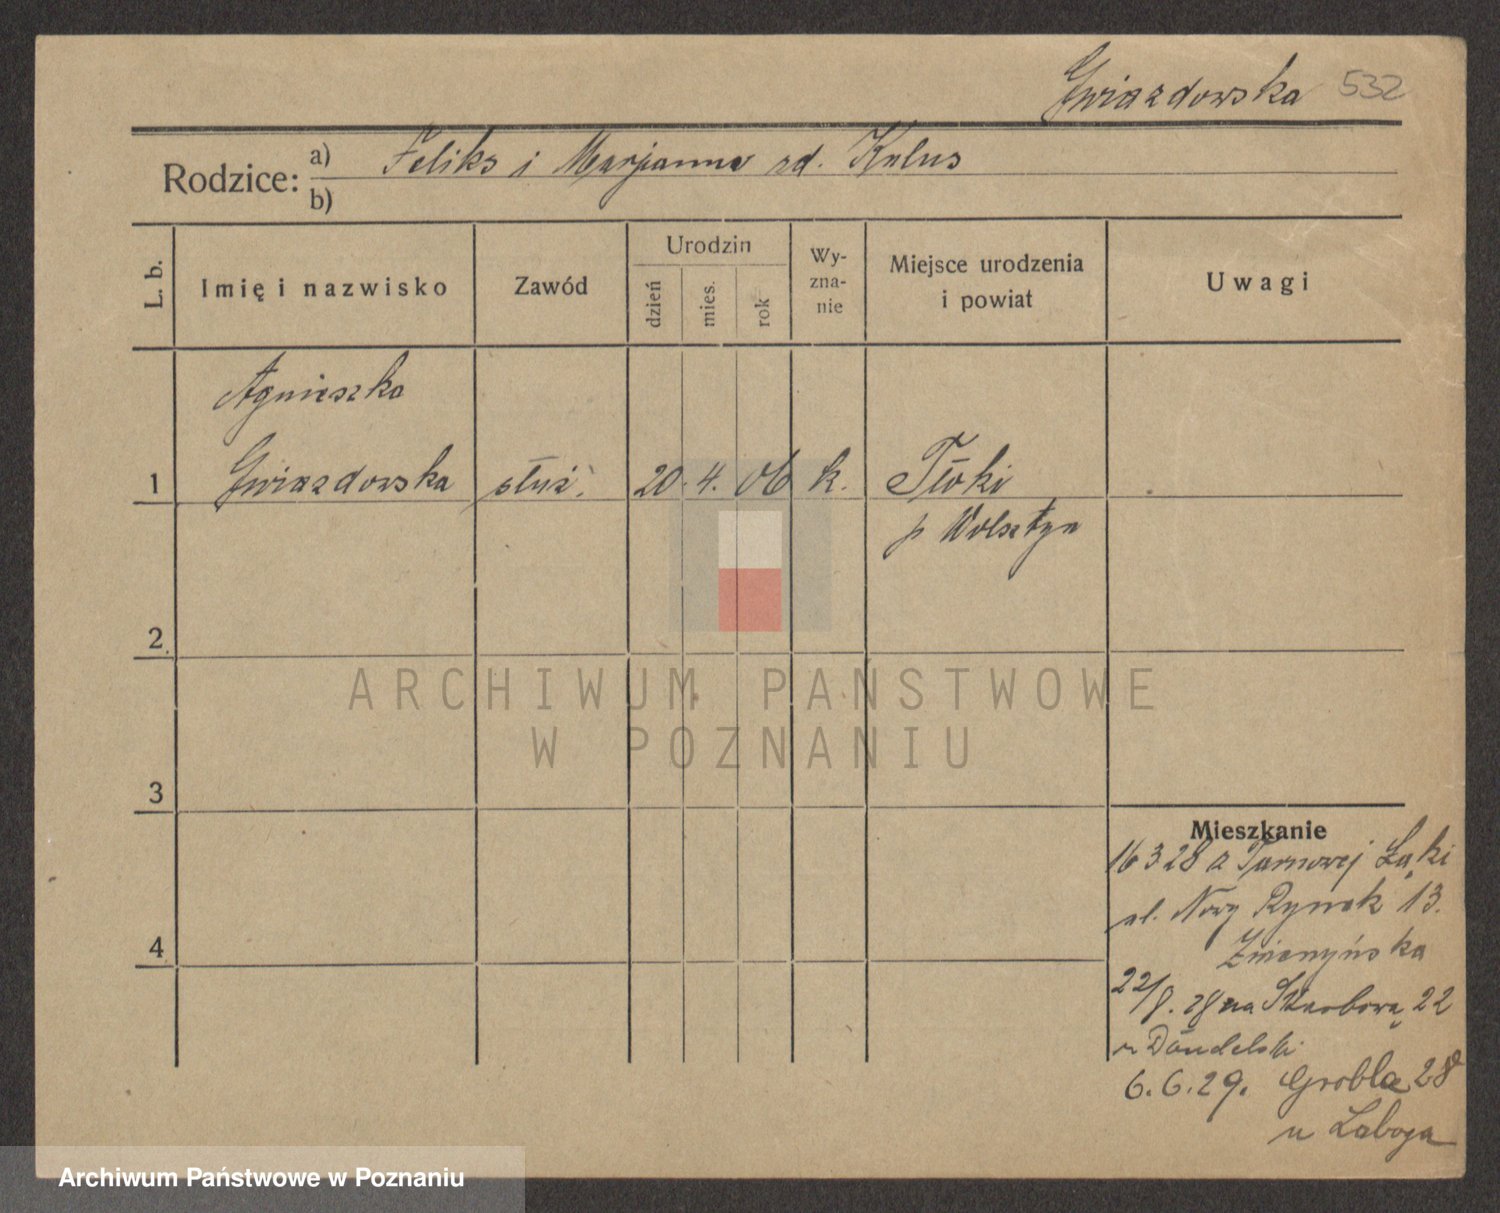 Gwiazdowska 532
Rodzice: a) Feliks i Marjanna zd. Kulus
b)
L. b.
Imię i nazwisko
Zawód
Urodzin
dzień
mies.
rok
Wy-
zna-
nie
Miejsce urodzenia
i powiat
Uwagi
Agnieszka
1 Gwiazdowska służ. 20. 4. 06 k. Tłoki
p Wolsztyn
2.
ARCHIWUM PAŃSTWOWE
W POZNANIU
3
Mieszkanie
16 3 28 z Tarnowej Łąki
ul. Nowy Rynek 13.
4
22/8. 28 na Skarbową 22
6.6.29. Grobla 28
u Laboga
Archiwum Państwowe w Poznaniu